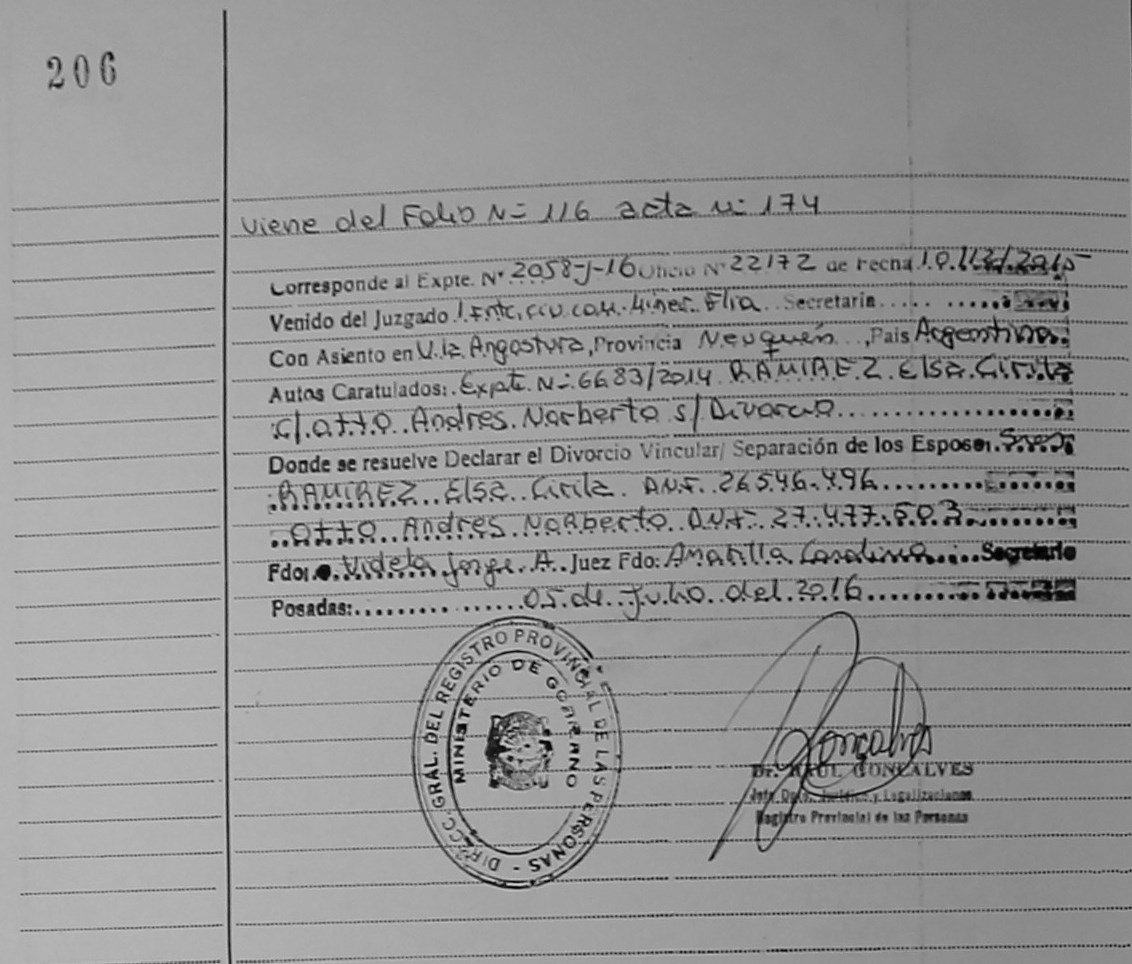 206
Viene del Folio N= 116 acta N= 174
Corresponde al Expte. N° 2058-J-16 Oficio N° 22172 de Fecha 10/12/2015
Venido del Juzgado 1 Inst. civ. com. Miner. Flia. Secretaria
Con Asiento en V. la Angostura, Provincia Neuquén, Pais Argentina
Autos Caratulados: Expte. N=6683/2014 RAMIREZ Elsa Cirila
c/ Otto Andres Norberto s/ Divorcio
Donde se resuelve Declarar el Divorcio Vincular/ Separación de los Esposos Sres
RAMIREZ Elsa Cirila D.N.I. 26.546.496
OTTO Andres Norberto D.N.I. 27.477.503
Fdo: Videla Jorge A. Juez Fdo: Carolina Secretario
Posadas: 05 de Julio del 2016
DIRECC. GRAL. DEL REGISTRO PROVINCIAL DE LAS PERSONAS -
MINISTERIO DE GOBIERNO
Gonçalves
Dr. RAUL GONCALVES
Jefe Dpto. Jurídico y Legalizaciones
Registro Provincial de las Personas